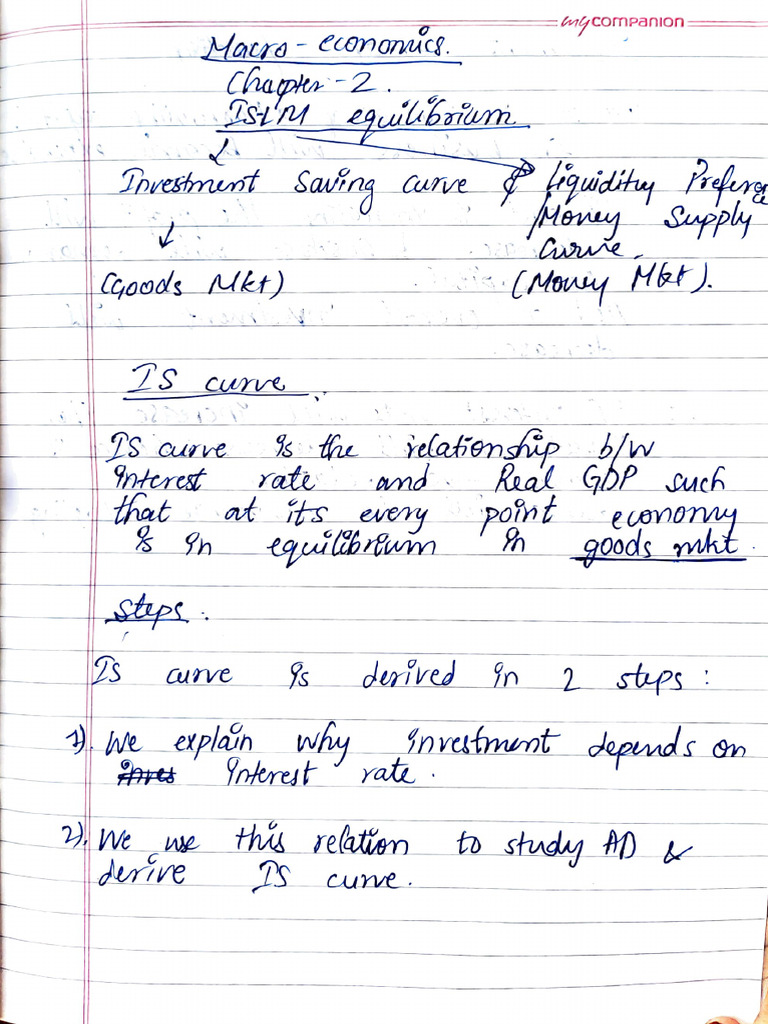 mycompanion
Macro-economics.
Chapter-2.
IS-LM equilibrium
Investment Saving curve & Liquidity Preference
/Money Supply
Curve.
(Goods Mkt) (Money Mkt).
IS curve
IS curve is the relationship b/w
interest rate and Real GDP such
that at its every point economy
is in equilibrium in goods mkt.
steps.
IS curve is derived in 2 steps:
1). We explain why investment depends on
interest rate.
2). We use this relation to study AD &
derive IS curve.